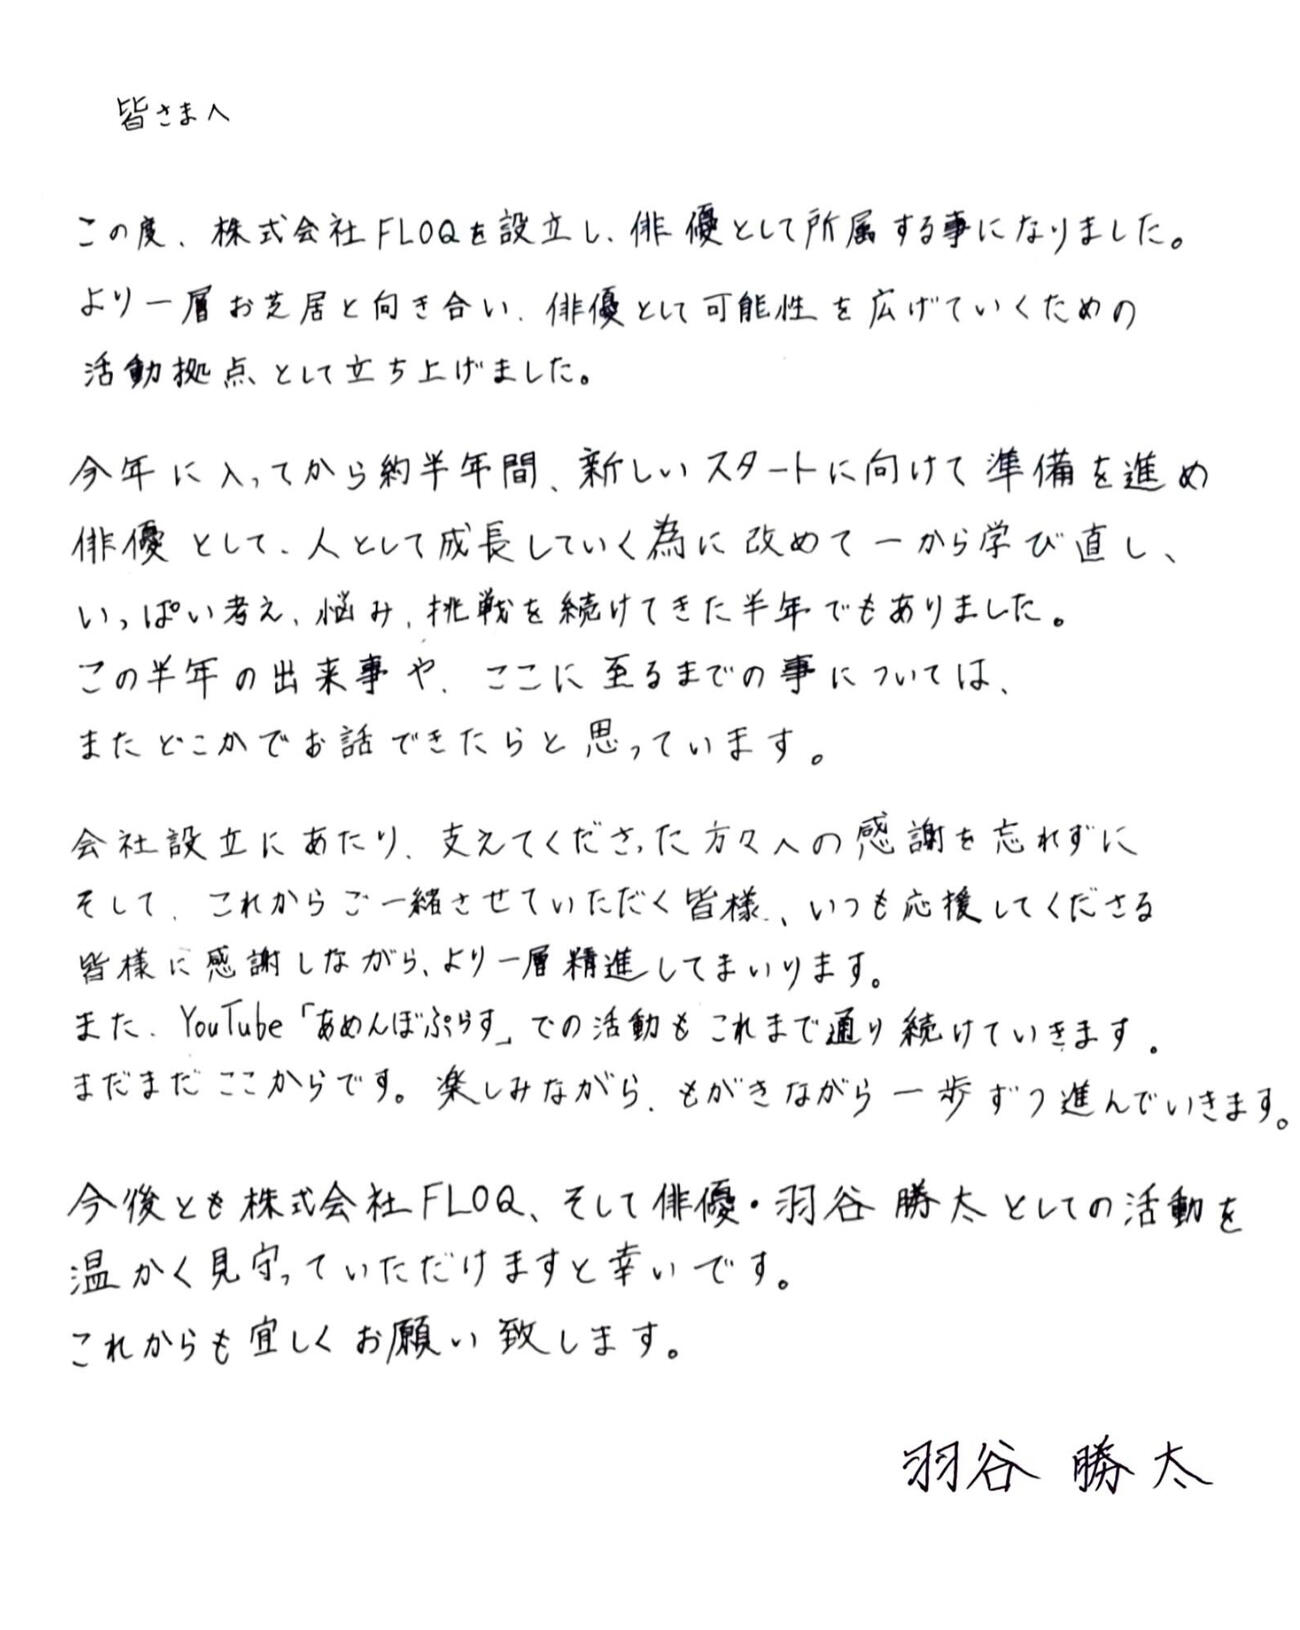 皆さまへ
この度、株式会社FLOQを設立し、俳優として所属する事になりました。
より一層お芝居と向き合い、俳優として可能性を広げていくための
活動拠点として立ち上げました。
今年に入ってから約半年間、新しいスタートに向けて準備を進め
俳優として、人として成長していく為に改めて一から学び直し、
いっぱい考え、悩み、挑戦を続けてきた半年でもありました。
この半年の出来事や、ここに至るまでの事については、
またどこかでお話できたらと思っています。
会社設立にあたり、支えてくださった方々への感謝を忘れずに
そして、これからご一緒させていただく皆様、いつも応援してくださる
皆様に感謝しながら、より一層精進してまいります。
また、YouTube「あめんぼぷらす」での活動もこれまで通り続けていきます。
まだまだここからです。楽しみながら、もがきながら一歩ずつ進んでいきます。
今後とも株式会社FLOQ、そして俳優・羽谷勝太としての活動を
温かく見守っていただけますと幸いです。
これからも宜しくお願い致します。
羽谷 勝太